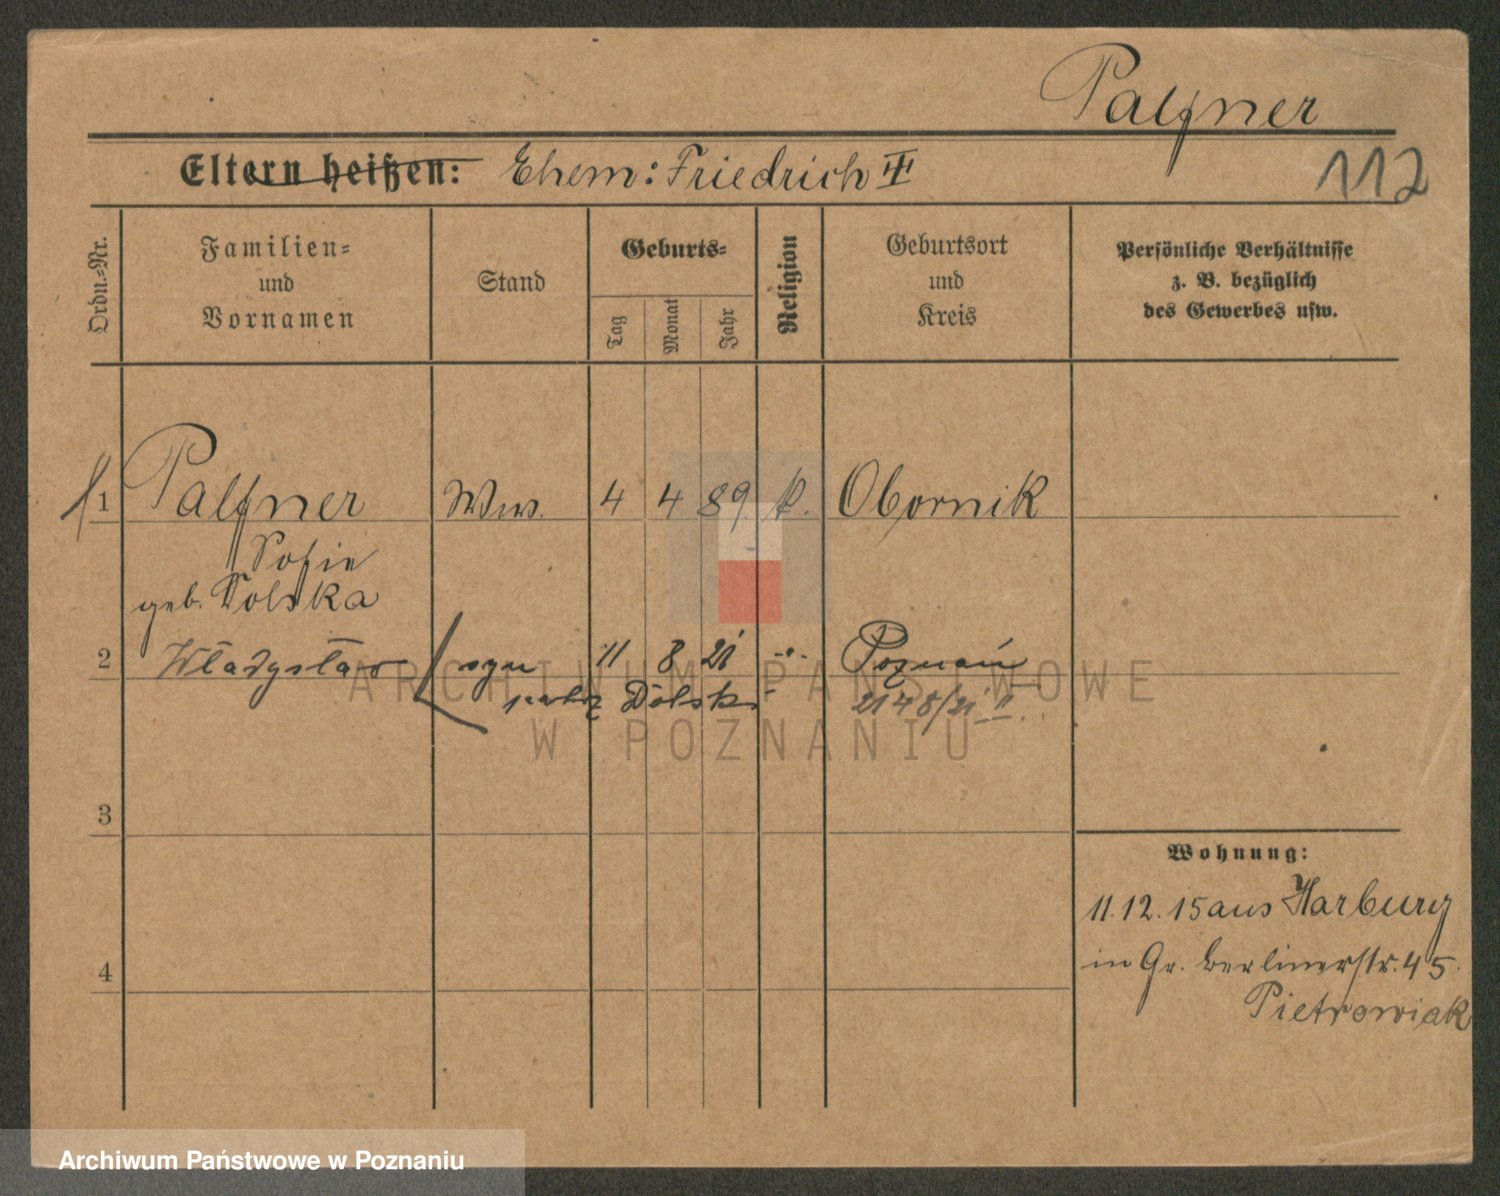 Palfner
Eltern heißen: Ehem: Friedrich III
112
Ordn.-Nr.
Familien-
und
Vornamen
Stand
Geburts-
Tag
Monat
Jahr
Religion
Geburtsort
und
Kreis
Persönliche Verhältnisse
z. B. bezüglich
des Gewerbes usw.
1 Palfner Ww. 4 4 89 k. Obornik
Sofie
geb. Dolska
2 Władysław syn 11 8 21 Poznań
Dolski 2148/21 II.
3
Wohnung:
11.12.15 aus Harburg
in Gr. Berlinerstr. 45.
4
Pietrowiak
ARCHIWUM PAŃSTWOWE
W POZNANIU
Archiwum Państwowe w Poznaniu